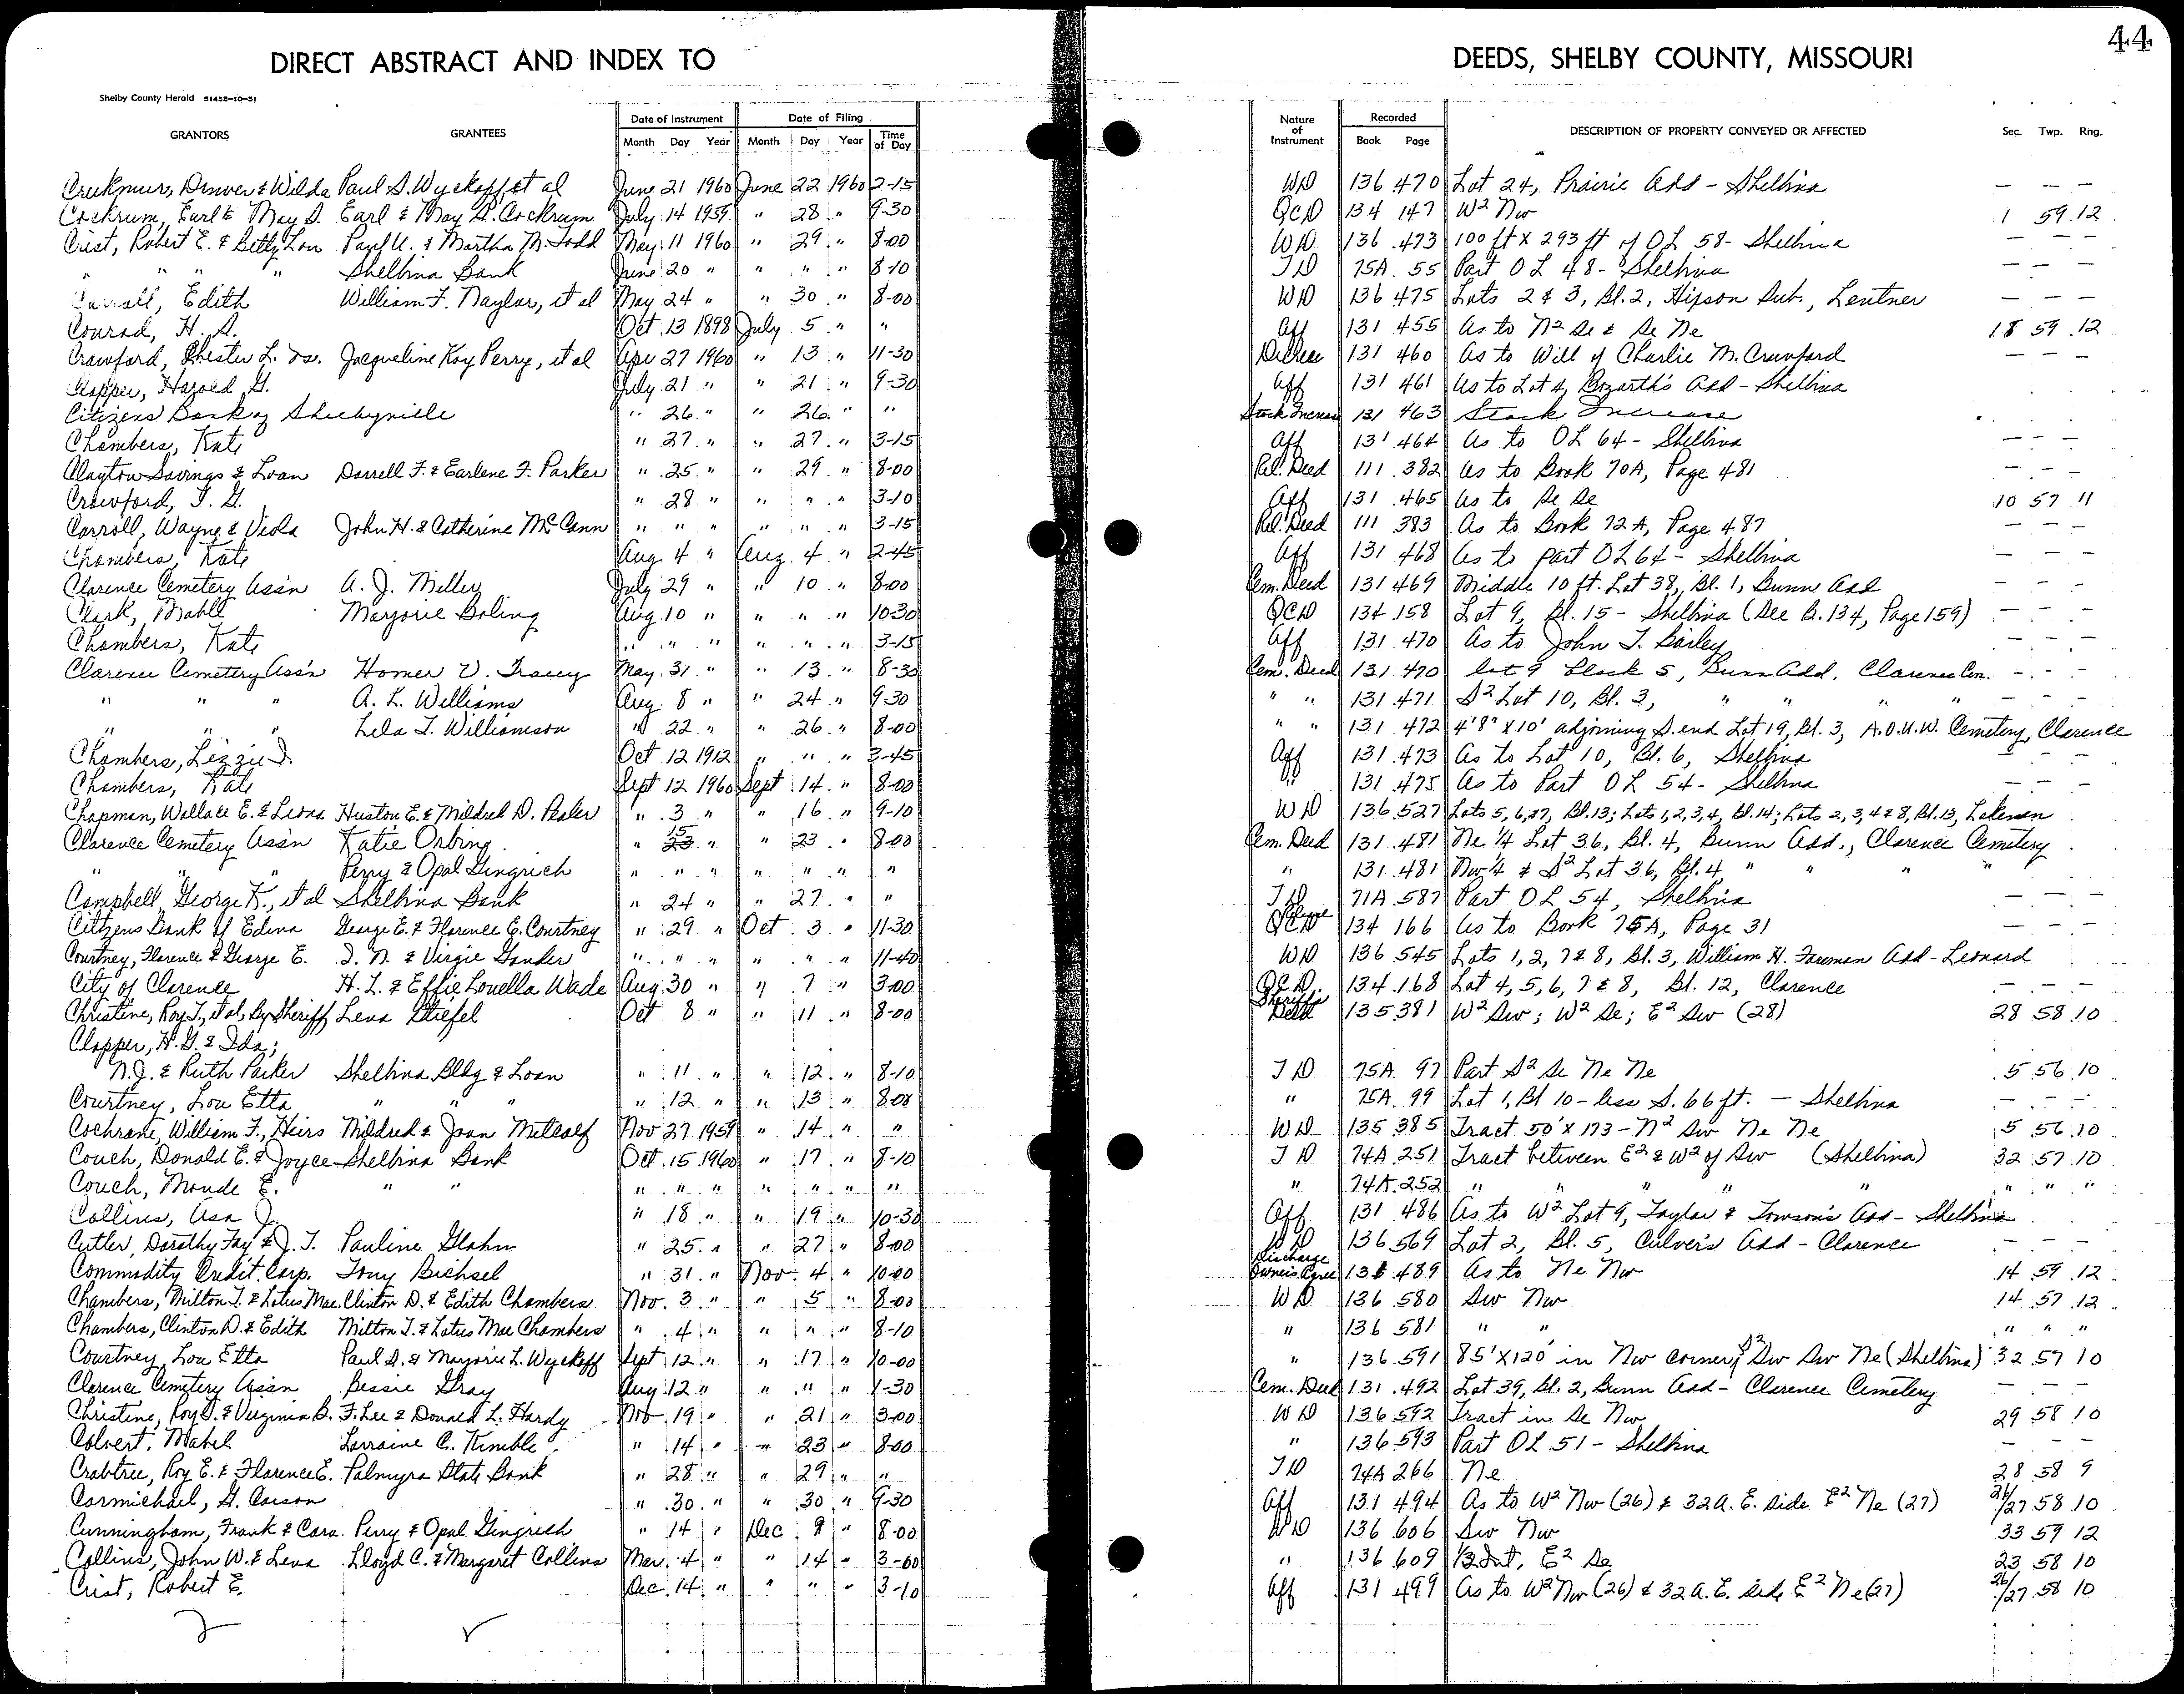 44
DIRECT ABSTRACT AND INDEX TO DEEDS, SHELBY COUNTY, MISSOURI
Shelby County Herald 51458-10-51
GRANTORS GRANTEES Date of Instrument Month Day Year Date of Filing Month Day Year Time of Day Nature of Instrument Recorded Book Page DESCRIPTION OF PROPERTY CONVEYED OR AFFECTED Sec. Twp. Rng.
Creekmur, Denver & Wilda Paul S. Wyckoff, et al June 21 1960 June 22 1960 2-15 WD 136 470 Lot 24, Prairie Add - Shelbina — — —
Cockrum, Earl & May S. Earl & May S. Cockrum July 14 1959 " 28 " 9-30 QCD 134 147 W2 Nw 1 59 12
Crist, Robert E. & Betty Lou Paul U. & Martha M. Todd May 11 1960 " 29 " 8-00 WD 136 473 100 ft X 293 ft of OL 58 - Shelbina — — —
" " " " Shelbina Bank June 20 " " " " 8-10 TD 75A 55 Part OL 48 - Shelbina — — —
Carroll, Edith William F. Naylor, et al May 24 " " 30 " 8-00 WD 136 475 Lots 2 & 3, Bl. 2, Hipson Sub., Lentner — — —
Conrad, H. A. Oct 13 1898 July 5 " " Aff 131 455 As to N2 Se & Se Ne 18 59 12
Crawford, Chester L. vs. Jacqueline Kay Perry, et al Apr 27 1960 " 13 " 11-30 Decree 131 460 As to Will of Charlie M. Crawford — — —
Clapper, Harold G. July 21 " " 21 " 9-30 Aff 131 461 As to Lot 4, Bozarth's Add - Shelbina
Citizens Bank of Shelbyville " 26 " " 26 " " Stock Increase 131 463 Stock Increase
Chambers, Kate " 27 " " 27 " 3-15 Aff 131 464 As to OL 64 - Shelbina — — —
Clayton Savings & Loan Darrell F. & Earlene F. Parker " 25 " " 29 " 8-00 Rel. Deed 111 382 As to Book 70A, Page 481 — — —
Crawford, T. G. " 28 " " " " 3-10 Aff 131 465 As to Se Se 10 57 11
Carroll, Wayne & Viola John H. & Catherine McCann " " " " " " 3-15 Rel. Deed 111 383 As to Book 72A, Page 487 — — —
Chambers, Kate Aug 4 " Aug. 4 " 2-45 Aff 131 468 As to part OL 64 - Shelbina — — —
Clarence Cemetery Ass'n A. J. Miller July 29 " " 10 " 8-00 Cem. Deed 131 469 Middle 10 ft. Lot 38, Bl. 1, Bunn Add — — —
Clark, Mable Marjorie Boling Aug 10 " " " " 10-30 QCD 134 158 Lot 9, Bl. 15 - Shelbina (See B. 134, Page 159) — — —
Chambers, Kate " " " " " " 3-15 Aff 131 470 As to John T. Bailey — — —
Clarence Cemetery Ass'n Homer V. Tracey May 31 " " 13 " 8-30 Cem. Deed 131 470 Lot 9 Block 5, Bunn Add, Clarence Cem. — — —
" " " A. L. Williams Aug. 8 " " 24 " 9-30 " " 131 471 S2 Lot 10, Bl. 3, " " " " — — —
" " " Lela T. Williamson " 22 " " 26 " 8-00 " " 131 472 4'8" X 10' adjoining S. end Lot 19, Bl. 3, A.O.U.W. Cemetery, Clarence
Chambers, Lizzie J. Oct 12 1912 " " " 3-45 Aff 131 473 As to Lot 10, Bl. 6, Shelbina — — —
Chambers, Kate Sept 12 1960 Sept 14 " 8-00 " 131 475 As to Part OL 54 - Shelbina — —
Chapman, Wallace E. & Leona Huston E. & Mildred D. Peoler " 3 " " 16 " 9-10 WD 136 527 Lots 5, 6, & 7, Bl. 13; Lots 1, 2, 3, 4, Bl. 14; Lots 2, 3, 4 & 8, Bl. 15, Lakenan
Clarence Cemetery Ass'n Katie Orbing " 15 " " 23 " 8-00 Cem. Deed 131 481 Ne 1/4 Lot 36, Bl. 4, Bunn Add., Clarence Cemetery
" " " Perry & Opal Gingrich " " " " " " " " 131 481 Nw 1/4 & S2 Lot 36, Bl. 4, " " "
Campbell, George K., et al Shelbina Bank " 24 " " 27 " " TD 71A 587 Part OL 54, Shelbina — — —
Citizens Bank of Edina George E. & Florence E. Courtney " 29 " Oct 3 " 11-30 QCD 134 166 As to Book 75A, Page 31 — — —
Courtney, Florence & George E. I. N. & Virgie Gander " " " " " " 11-40 WD 136 545 Lots 1, 2, 7 & 8, Bl. 3, William H. Foreman Add - Leonard
City of Clarence H. L. & Effie Louella Wade Aug 30 " " 7 " 3-00 QCD 134 168 Lot 4, 5, 6, 7 & 8, Bl. 12, Clarence — — —
Christine, Roy J., et al, by Sheriff Lena Stiefel Oct 8 " " 11 " 8-00 Sheriff's Deed 135 381 W2 Sw; W2 Se; E2 Sw (28) 28 58 10
Clapper, H. G. & Ida;
N. J. & Ruth Parker Shelbina Bldg & Loan " 11 " " 12 " 8-10 TD 75A 97 Part S2 Se Ne Ne 5 56 10
Courtney, Lou Etta " " " " 12 " " 13 " 8-00 " 75A 99 Lot 1, Bl 10 - less S. 66 ft. — Shelbina — — —
Cochrane, William F., Heirs Mildred & Joan Metcalf Nov 27 1959 " 14 " " WD 135 385 Tract 50' X 173 - N2 Sw Ne Ne 5 56 10
Couch, Donald E. & Joyce Shelbina Bank Oct 15 1960 " 17 " 8-10 TD 74A 251 Tract between E2 & W2 of Sw (Shelbina) 32 57 10
Couch, Monde E. " " " " " " " " " " 74A 252 " " " " " " " "
Collins, Asa J. " 18 " " 19 " 10-30 Aff 131 486 As to W2 Lot 9, Taylor & Towson's Add - Shelbina
Cutler, Dorothy Fay & J. T. Pauline Glahn " 25 " " 27 " 8-00 WD 136 569 Lot 2, Bl. 5, Culver's Add - Clarence — — —
Commodity Credit Corp. Tony Bichsel " 31 " Nov 4 " 10-00 Discharge Owners Agree 131 489 As to Ne Nw 14 59 12
Chambers, Milton T. & Lotus Mae Clinton D. & Edith Chambers Nov. 3 " " 5 " 8-00 WD 136 580 Sw Nw 14 57 12
Chambers, Clinton D. & Edith Milton T. & Lotus Mae Chambers " 4 " " " " 8-10 " 136 581 " " " " "
Courtney, Lou Etta Paul S. & Marjorie L. Wyckoff Sept 12 " " 17 " 10-00 " 136 591 85' X 120' in Nw corner of S2 Sw Sw Ne (Shelbina) 32 57 10
Clarence Cemetery Ass'n Bessie Gray Aug 12 " " " " 1-30 Cem. Deed 131 492 Lot 39, Bl. 2, Bunn Add - Clarence Cemetery — — —
Christine, Roy J. & Virginia B. F. Lee & Donald L. Hardy Nov 19 " " 21 " 3-00 WD 136 592 Tract in Se Nw 29 58 10
Colvert, Mabel Lorraine C. Kimble " 14 " " 23 " 8-00 " 136 593 Part OL 51 - Shelbina — — —
Crabtree, Roy E. & Florence E. Palmyra State Bank " 28 " " 29 " " TD 74A 266 Ne 28 58 9
Carmichael, G. Carson " 30 " " 30 " 9-30 Aff 131 494 As to W2 Nw (26) & 32 A. E. side E2 Ne (27) 26/27 58 10
Cunningham, Frank & Cora Perry & Opal Gingrich " 14 " Dec 9 " 8-00 WD 136 606 Sw Nw 33 59 12
Collins, John W. & Leva Lloyd C. & Margaret Collins Mar 4 " " 14 " 3-00 " 136 609 1/2 Int, E2 Se 23 58 10
Crist, Robert E. Dec 14 " " " " 3-10 Aff 131 499 As to W2 Nw (26) & 32 A. E. side E2 Ne (27) 26/27 58 10